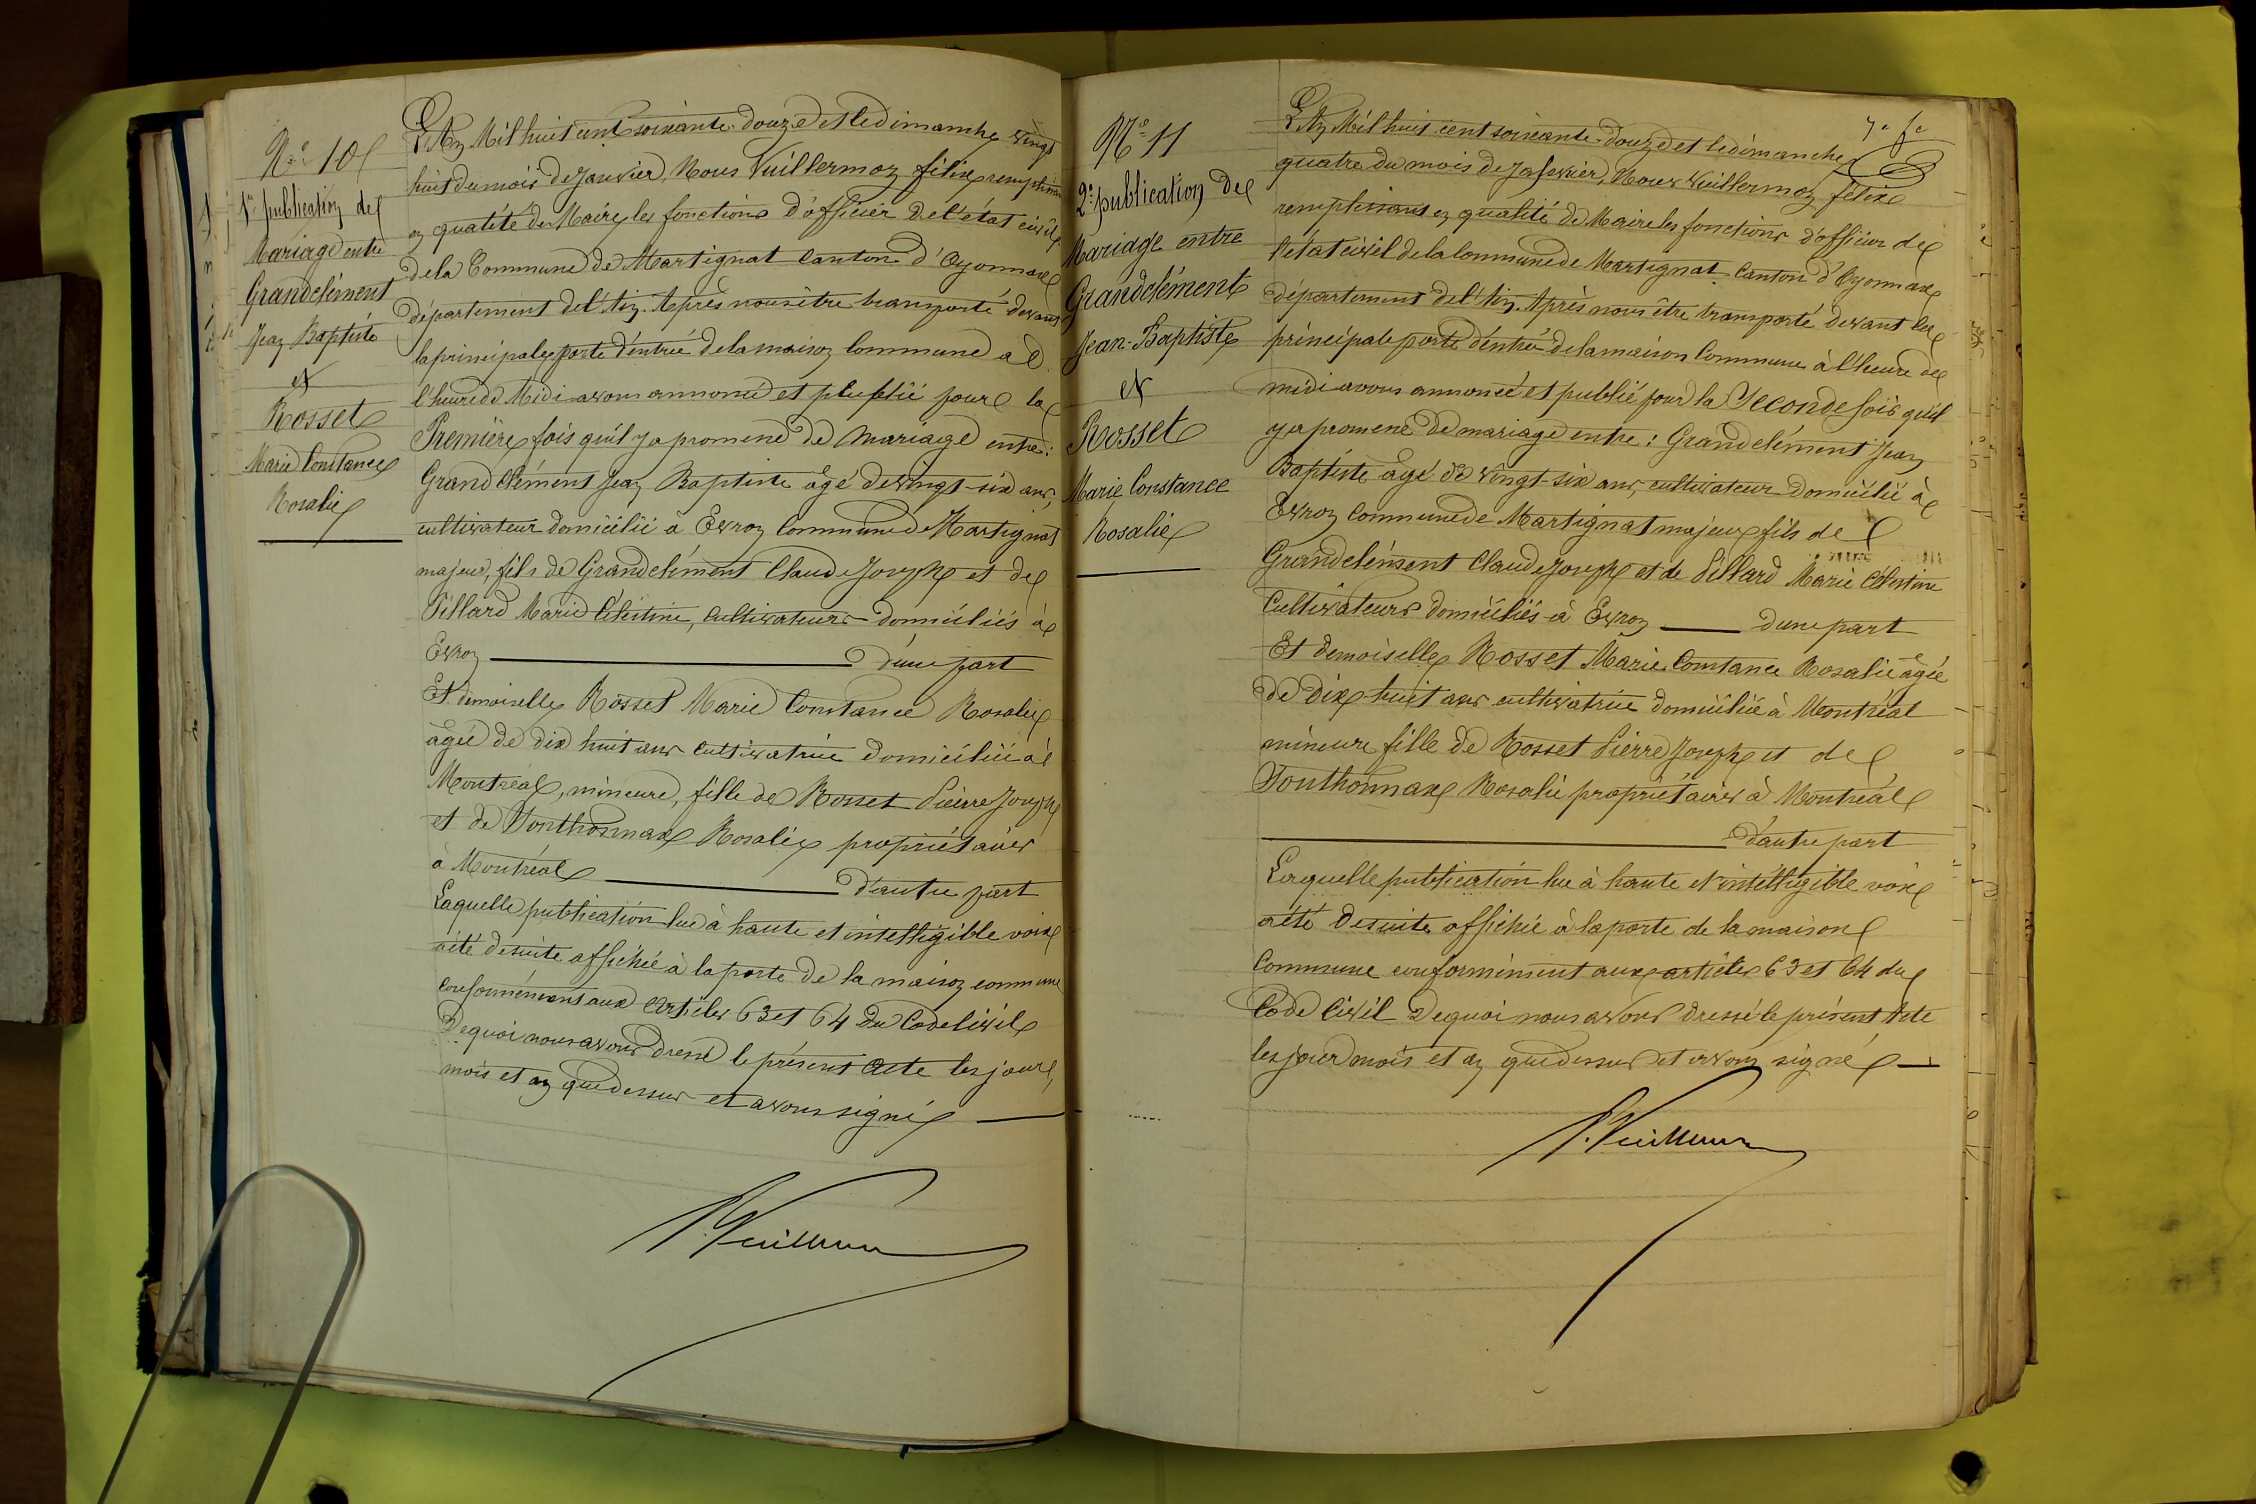 N° 10
1re publication de
Mariage entre
Grandclément
Jean Baptiste
et
Rosset
Marie Constance
Rosalie
L'An Mil huit cent soixante-douze et le dimanche vingt
huit du mois de janvier, Nous Vuillermoz félix remplissant
en qualité de Maire les fonctions d'officier de l'état civil
de la Commune de Martignat Canton d'Oyonnax
département de l'Ain. Après nous être transporté devant
la principale porte d'entrée de la maison Commune à
l'heure de Midi avons annoncé et plublié pour la
Première fois qu'il y a promene de mariage entre:
Grandclément Jean Baptiste âgé de vingt-six ans,
cultivateur domicilié à Evron Commune de Martignat
majeur, fils de Grandclément Claude Joseph et de
Pillard Marie Célestine, cultivateurs domiciliés à
Evron d'une part
Et demoiselle Rosset Marie Constance Rosalie
âgée de dix huit ans cultivatrice domiciliée à
Montréal, mineure, fille de Rosset Pierre Joseph
et de Tonthonnax Rosalie propriétaires
à Montréal d'autre part
Laquelle publication lue à haute et intelligible voix
a été desuite affichée à la porte de la maison commune
conformément aux Articles 63 et 64 du Code Civil
De quoi nous avons dressé le présent Acte les jour,
mois et an que dessus et avons signé
F. Vuillermoz
7e fe
N° 11
2e publication de
Mariage entre
Grandclément
Jean-Baptiste
et
Rosset
Marie Constance
Rosalie
L'An Mil huit cent soixante-douze et le dimanche
quatre du mois de Janvier, Nous Vuillermoz félix
remplissant en qualité de Maire les fonctions d'officier de
l'état civil de la Commune de Martignat Canton d'Oyonnax
département de l'Ain. Après nous être transporté devant la
principale porte d'entrée de la maison Commune à l'heure de
midi avons annoncé et publié pour la Seconde fois qu'il
y a promene de mariage entre: Grandclément Jean
Baptiste âgé de vingt-six ans, cultivateur domicilié à
Evron Commune de Martignat majeur fils de
Grandclément Claude Joseph et de Pillard Marie Célestine
Cultivateurs domiciliés à Evron d'une part
Et demoiselle Rosset Marie Constance Rosalie âgée
de dix-huit ans cultivatrice domiciliée à Montréal
mineure fille de Rosset Pierre Joseph et de
Tonthonnax Rosalie propriétaires à Montréal
d'autre part
Laquelle publication lue à haute et intelligible voix
a été desuite affichée à la porte de la maison
Commune conformément aux articles 63 et 64 du
Code Civil De quoi nous avons dressé le présent Acte
les jour mois et an que dessus et avons signé
F. Vuillermoz